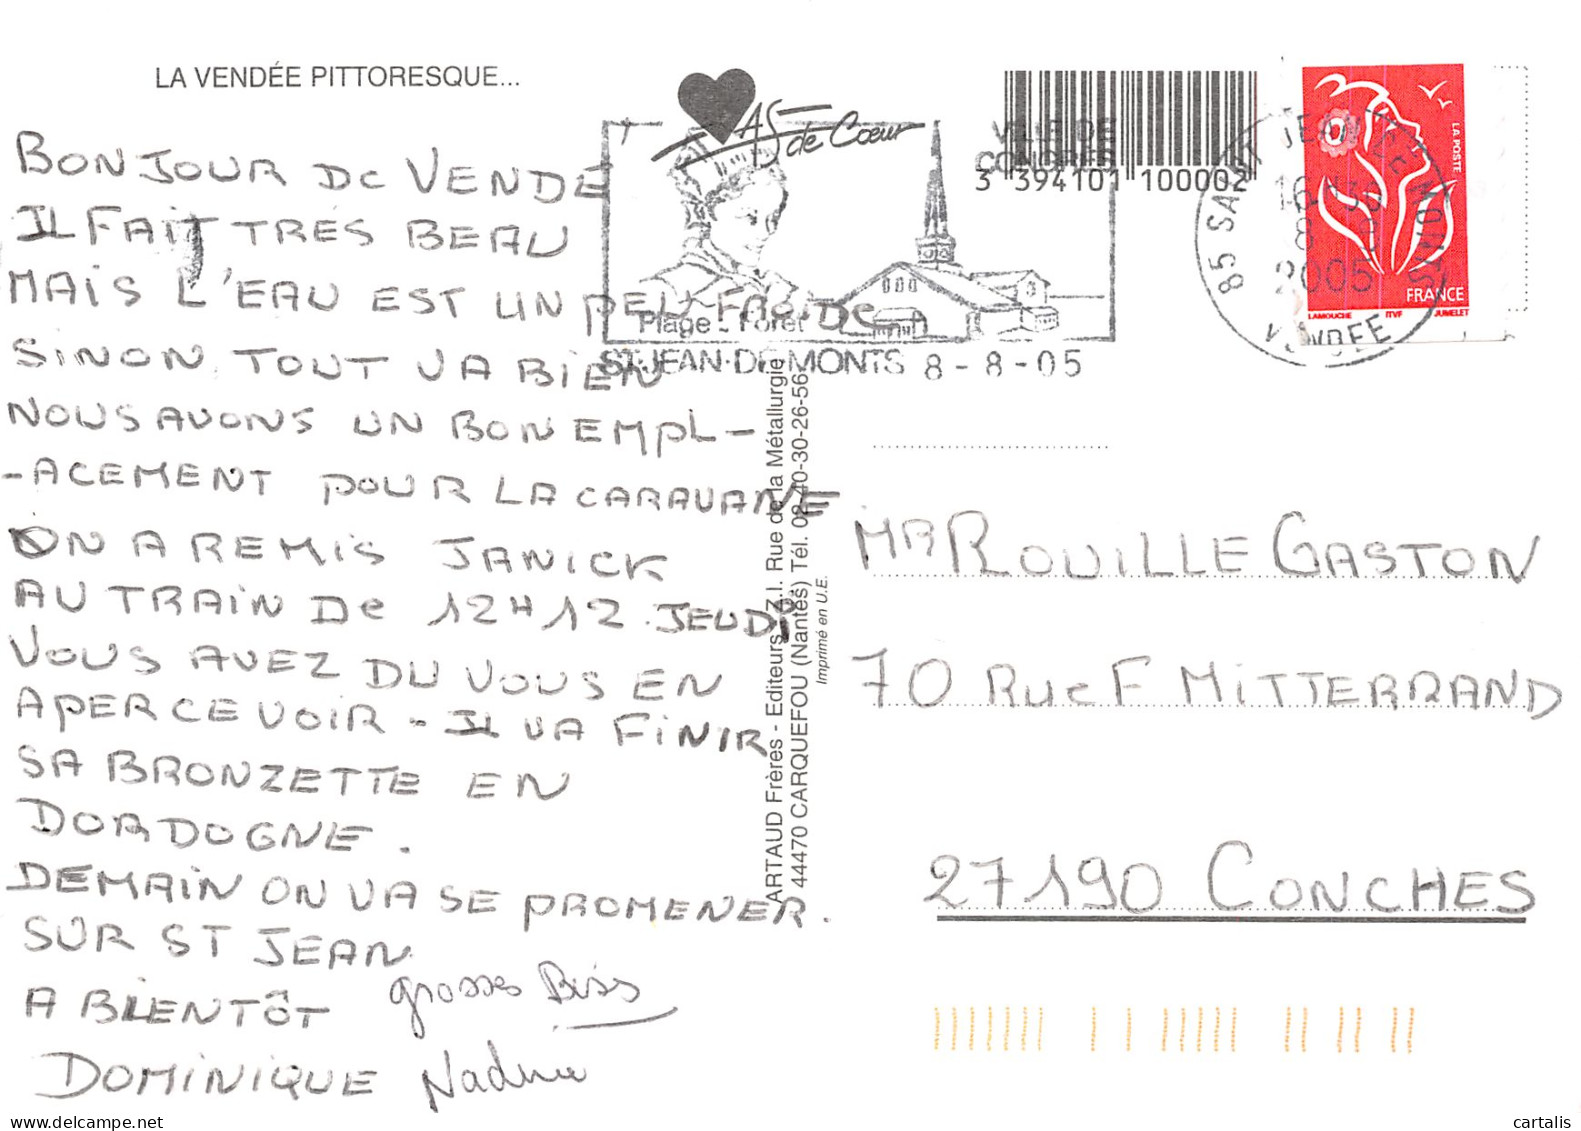 LA VENDÉE PITTORESQUE...
BONJOUR DE VENDÉ
IL FAIT TRÉS BEAU
MAIS L'EAU EST UN PEU FROIDE
SINON TOUT VA BIEN
NOUS AVONS UN BON EMPL-
-ACEMENT POUR LA CARAVANE
ON A REMIS JANICK
AU TRAIN DE 12H12 JEUDI
VOUS AVEZ DU VOUS EN
APERCEVOIR - IL VA FINIR
SA BRONZETTE EN
DORDOGNE.
DEMAIN ON VA SE PROMENER.
SUR ST JEAN
A BIENTÔT grosses Bises
DOMINIQUE Nadine
AS de Cœur
VILLE DE
CONGRES
3 394101 100002
Plage - Forêt
ST-JEAN-DE-MONTS 8-8-05
85 SAINT JEAN DE MONTS
16H30
8
2005
VENDEE
LA POSTE
FRANCE
LAMOUCHE ITVF JUMELET
ARTAUD Frères - Editeurs - Z.I. Rue de la Métallurgie
44470 CARQUEFOU (Nantes) Tél. 02-40-30-26-56
Imprimé en U.E.
MR ROUILLE GASTON
70 RUE F MITTERRAND
27190 CONCHES
delcampe.net user bmcp
cartalis